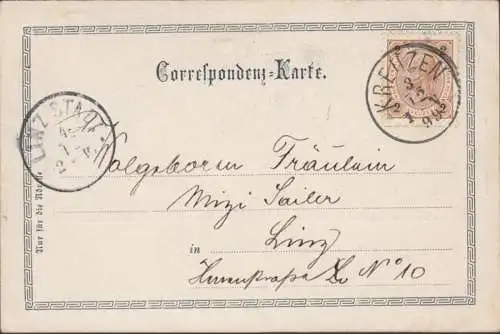 Correspondenz-Karte.
KREUZEN
LINZ STADT
Nur für die Adresse
Wolgeborm Fräulein
Mizi Sailer
in Linz
Herrenstraße No 10